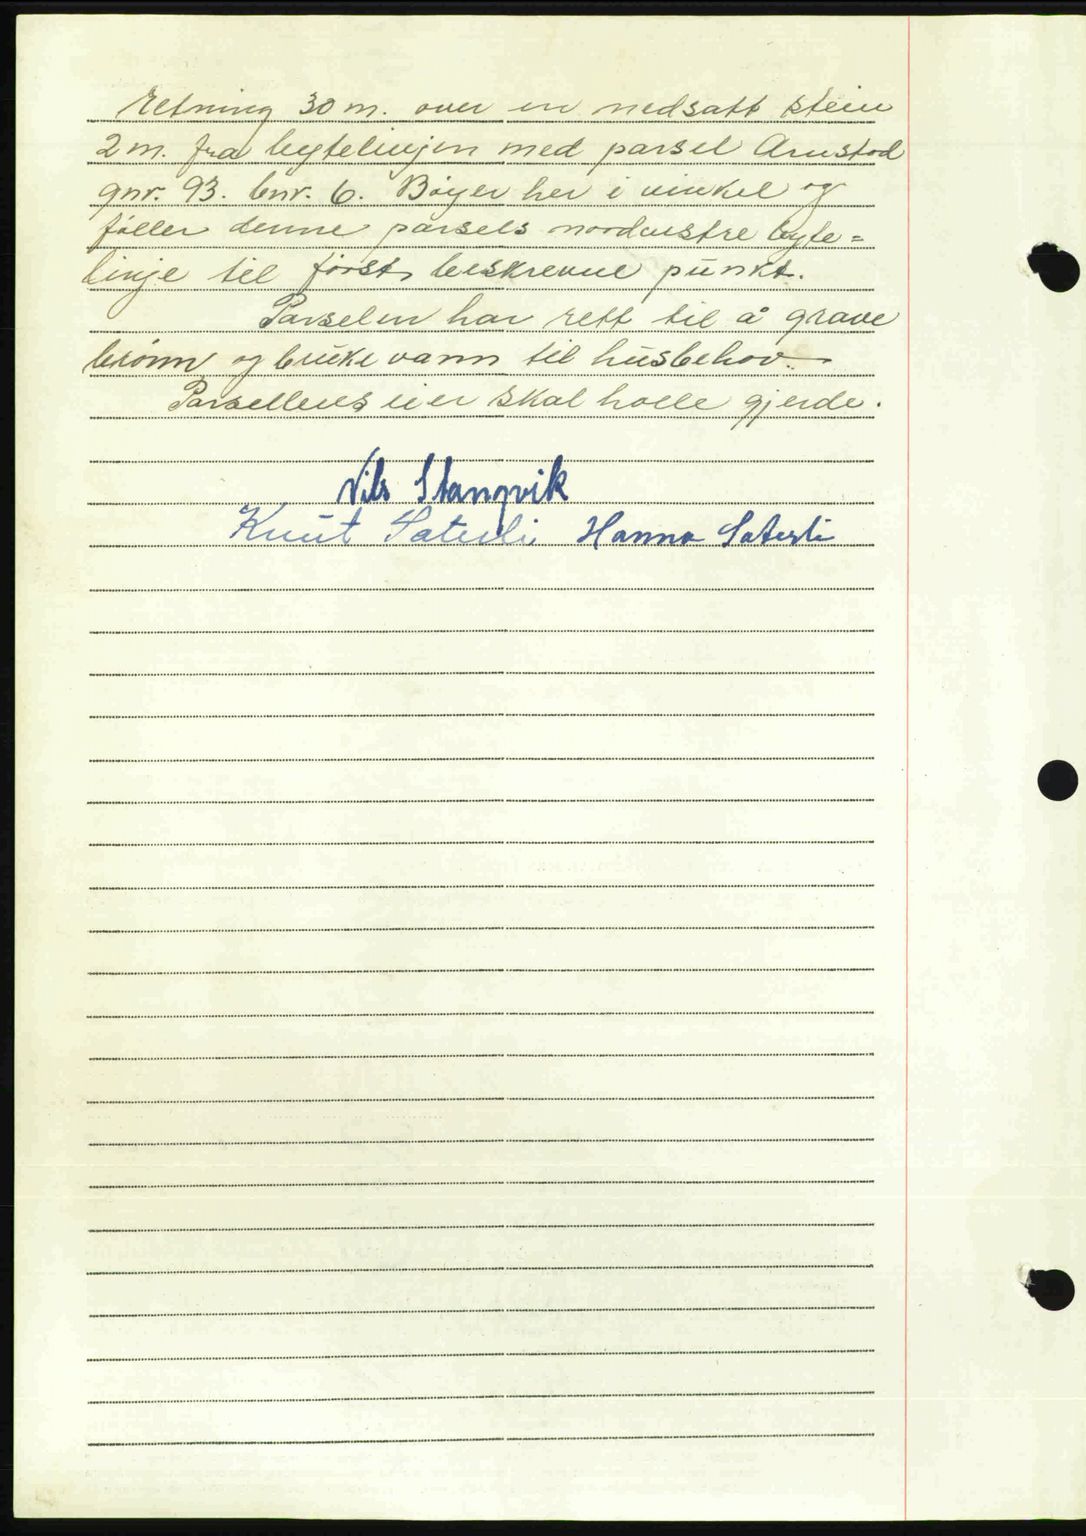 retning 30 m. over en nedsatt stein
2 m. fra bytelinjen med parsel Arustod
gnr. 93. bnr. 6. Bøyer her i vinkel og
føller denne parsels nordvestre byte=
linje til først beskrevne punkt.
Parselen har rett til å grave
brønn og bruke vann til husbehov.
Parsellens eier skal holle gjerde.
Nils Stangvik
Knut Saterli Hanna Saterli